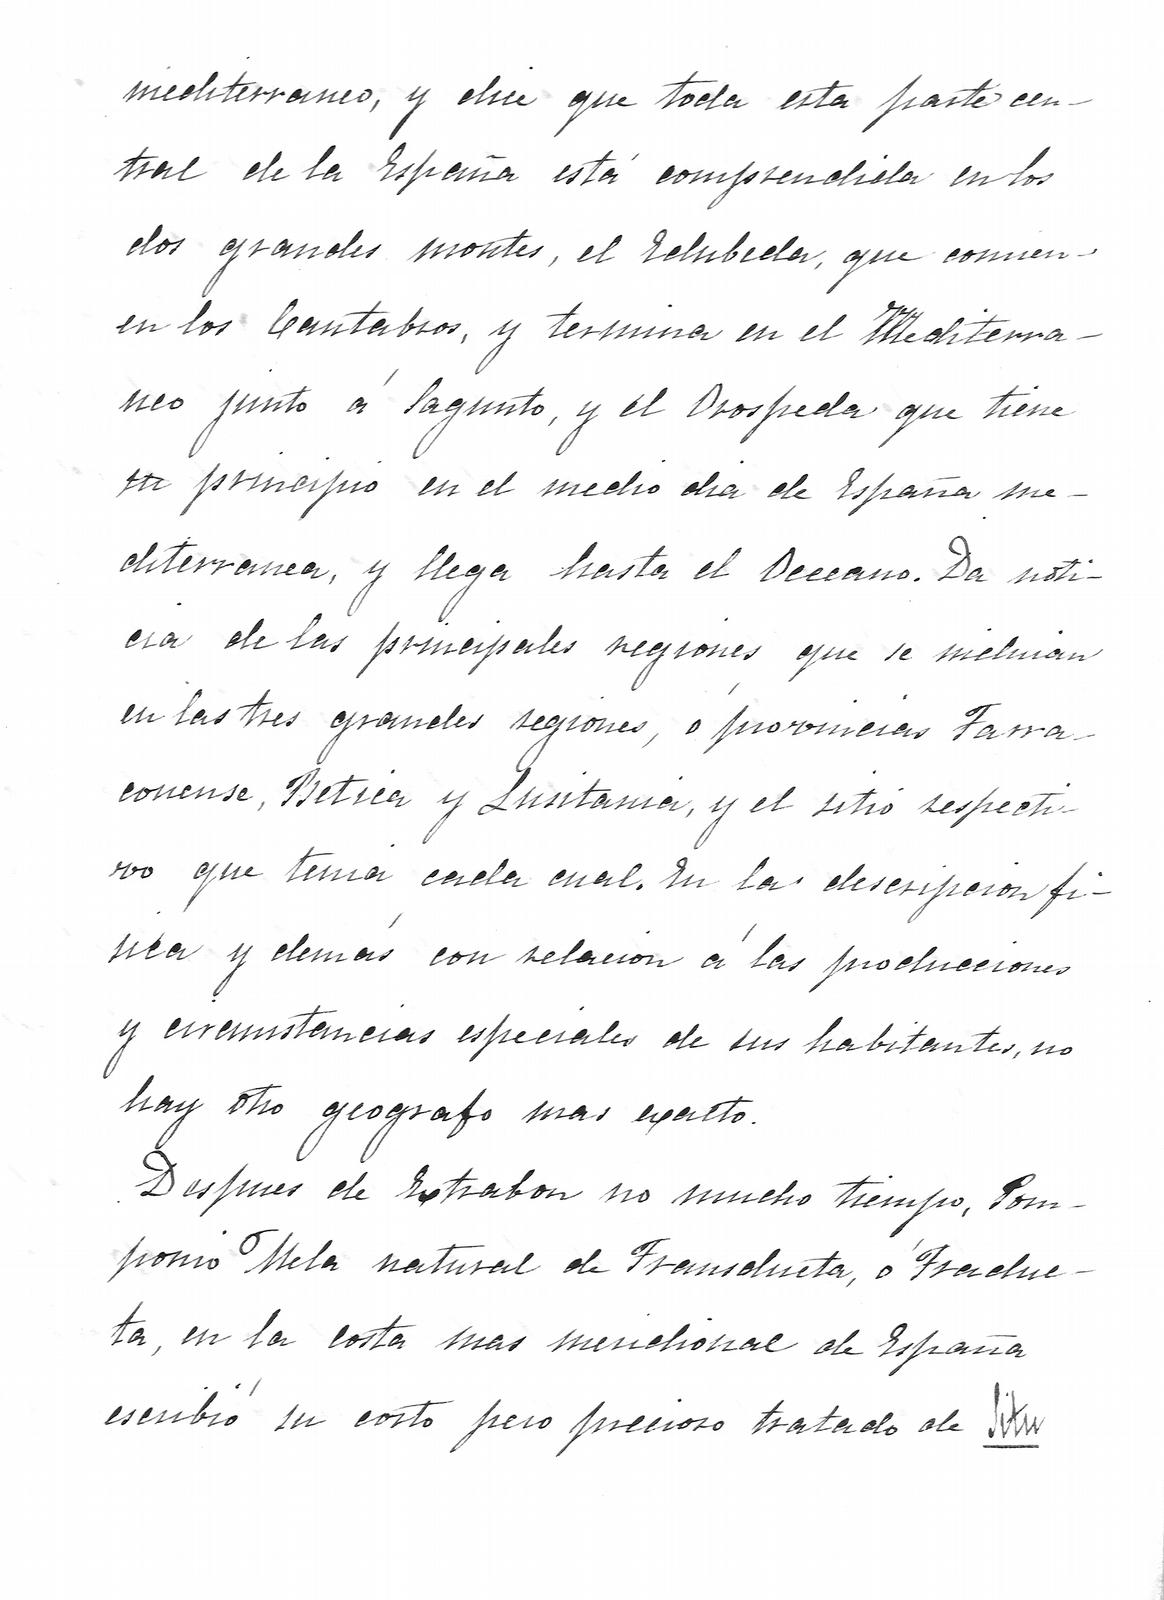 mediterraneo, y dice que toda esta parte cen-
tral de la España está comprendida en los
dos grandes montes, el Edubeda, que comien-
en los Cantabros, y termina en el Mediterra-
neo junto á Sagunto, y el Orospeda que tiene
su principio en el medio dia de España me-
diterranea, y llega hasta el Occeano. Da noti-
cia de las principales regiones que se incluian
en las tres grandes regiones, ó provincias Tarra-
conense, Betica y Lusitania, y el sitio respecti-
vo que tenia cada cual. En la descripcion fi-
sica y demás con relacion á las producciones
y circunstancias especiales de sus habitantes, no
hay otro geografo mas exacto.
Despues de Extrabon no mucho tiempo, Pom-
ponio Mela natural de Transducta, ó Traduc-
ta, en la costa mas meridional de España
escribió su corto pero precioso tratado de Situ